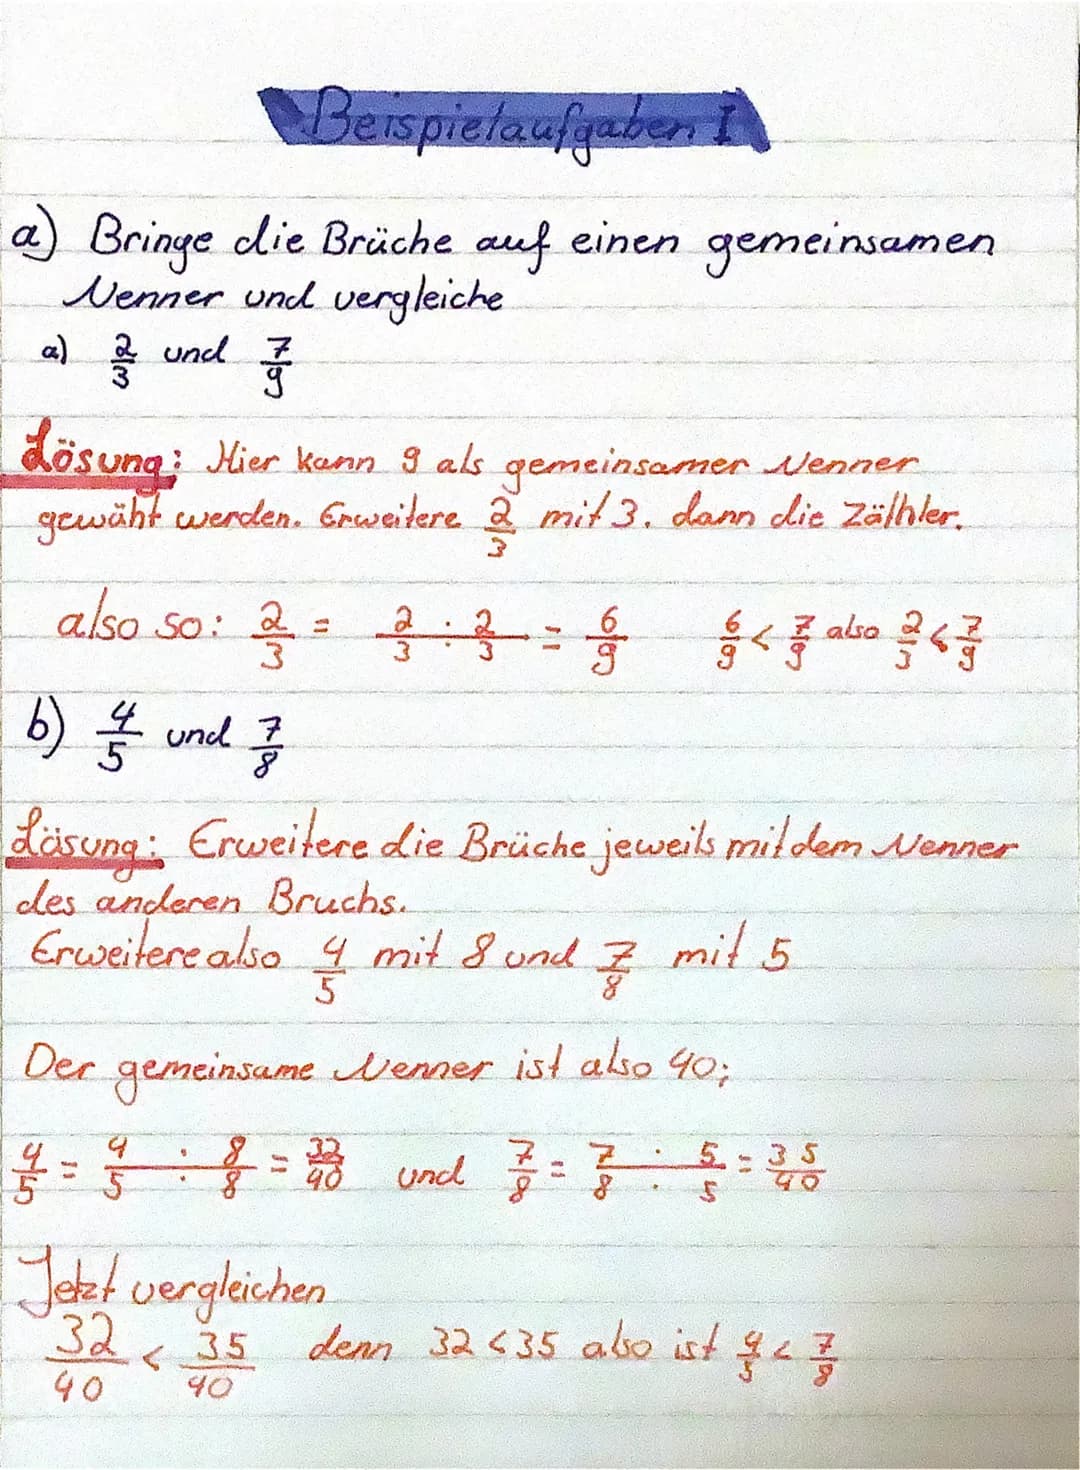 Beispielaufgaben I
a) Bringe die Brüche auf einen gemeinsamen
Nenner und vergleiche
a) 2/3 und 7/9
Lösung: Hier kann 9 als gemeinsamer Nenner
gewäht werden. Erweitere 2/3 mit 3. dann die Zälhler.
also so: 2/3 = 2 : 2 / 3 : 3 = 6/9 6/9 < 7/9 also 2/3 < 7/9
b) 4/5 und 7/8
Lösung: Erweitere die Brüche jeweils mit dem Nenner
des anderen Bruchs.
Erweitere also 4/5 mit 8 und 7/8 mit 5
Der gemeinsame Nenner ist also 40;
4/5 = 4 : 8 / 5 : 8 = 32/40 und 7/8 = 7 : 5 / 8 : 5 = 35/40
Jetzt vergleichen
32/40 < 35/40 denn 32 < 35 also ist 4/5 < 7/8